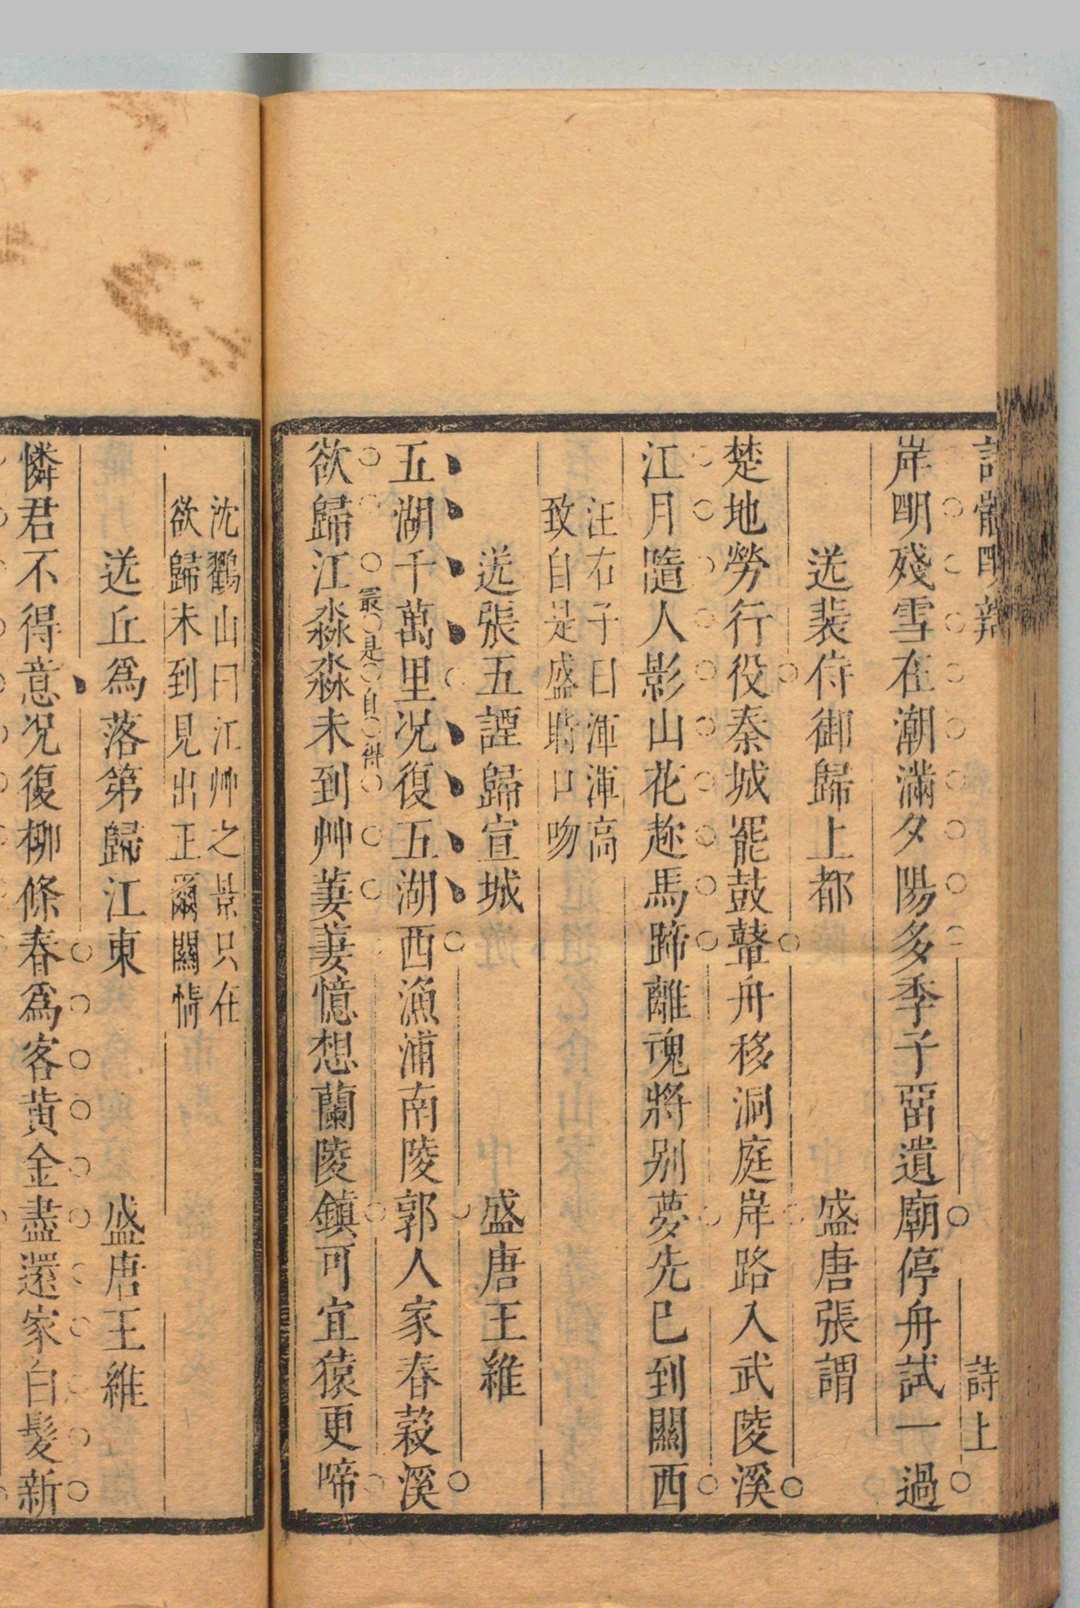 詩體明辯 詩上
岸明殘雪在潮滿夕陽多季子畱遺廟停舟試一過
送裴侍御歸上都 盛唐張謂
楚地勞行役秦城罷鼓鼙舟移洞庭岸路入武陵溪
江月隨人影山花趂馬蹄離魂將別夢先已到關西
汪右子曰渾渾高
致自是盛時口吻
送張五諲歸宣城 盛唐王維
五湖千萬里况復五湖西漁浦南陵郭人家春穀溪
㝡是自
欲歸江淼淼未到艸萋萋憶想蘭陵鎮可宜猿更啼
沈鶴山曰江艸之景只在
欲歸未到見出正爾關情
送丘爲落第歸江東 盛唐王維
憐君不得意况復柳條春爲客黃金盡還家白髮新